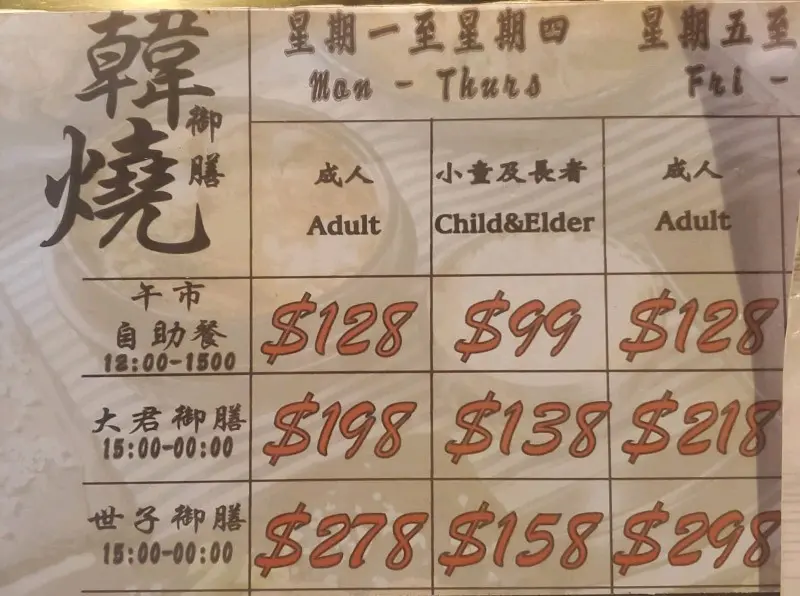 韓燒
御膳
星期一至星期四
Mon - Thurs
星期五至
Fri -
成人
Adult
小童及長者
Child&Elder
成人
Adult
午市
自助餐
12:00-1500
$128
$99
$128
大君御膳
15:00-00:00
$198
$138
$218
世子御膳
15:00-00:00
$278
$158
$298